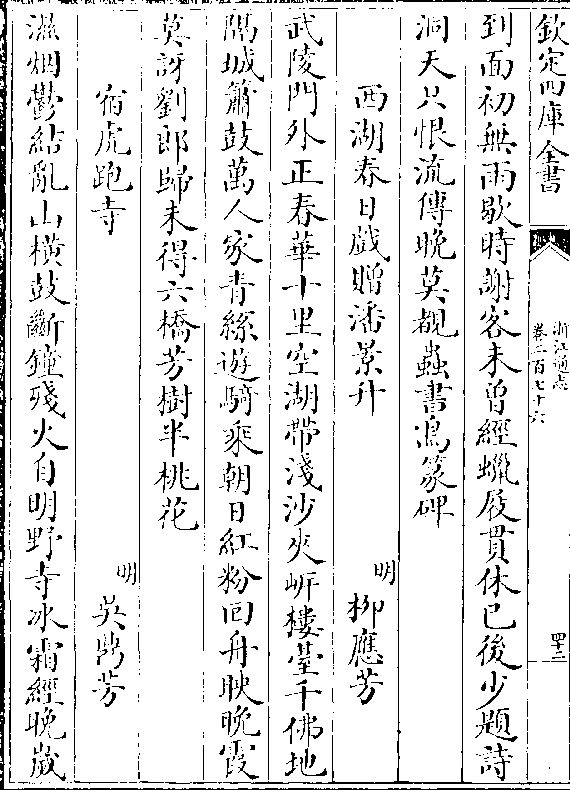 欽定四庫全書
浙江通志
卷二百七十六
四十二
到面初無雨歇時謝客未曾經蠟屐貫休已後少題詩
洞天只恨流傳晚莫覩蟲書鳥篆碑
西湖春日戲贈潘景升
明
柳應芳
武陵門外正春華十里空湖帶淺沙夾岍樓臺千佛地
隔城簫鼓萬人家青絲遊騎乘朝日紅粉回舟映晚霞
莫訝劉郎歸未得六橋芳樹半桃花
宿虎跑寺
明
吳鼎芳
濕烟鬱結亂山橫鼓斷鐘殘火自明野寺冰霜經晚歲